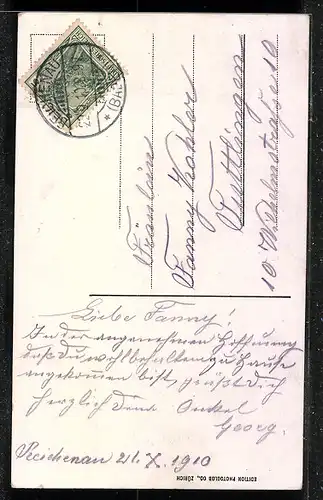 REICHENAU
(BAD
Fräulein
Fanny Kohler
Tuttlingen
10 Wilhelmstraße 10
Liebe Fanny!
In der angenehmen Hoffnung
daß du wohlbehalten zu Hause
angekommen bist, grüßt Dich
herzlich Dein Onkel
Georg.
Reichenau 21. X. 1910
EDITION PHOTOGLOB CO., ZÜRICH